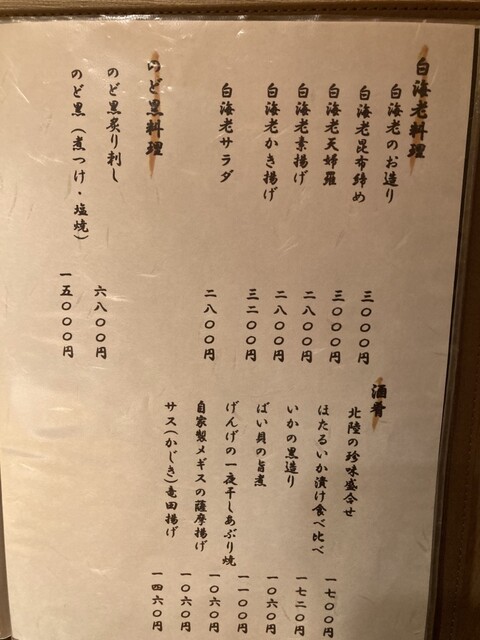 白海老料理
白海老のお造り 三〇〇〇円
白海老昆布締め 三〇〇〇円
白海老天婦羅 二八〇〇円
白海老素揚げ 二八〇〇円
白海老かき揚げ 三二〇〇円
白海老サラダ 二八〇〇円
のど黒料理
のど黒炙り刺し 六八〇〇円
のど黒（煮つけ・塩焼） 一五〇〇〇円
酒肴
北陸の珍味盛合せ 一七〇〇円
ほたるいか漬け食べ比べ 一七二〇円
いかの黒造り 一〇六〇円
ばい貝の旨煮 一一〇〇円
げんげの一夜干しあぶり焼 一〇六〇円
自家製メギスの薩摩揚げ 一〇六〇円
サス（かじき）竜田揚げ 一四六〇円